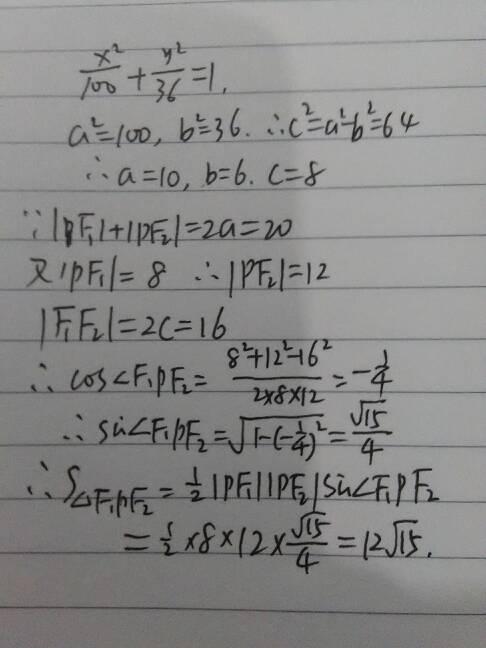 x²/100 + y²/36 = 1,
a²=100, b²=36. ∴c²=a²-b²=64
∴a=10, b=6. c=8
∵|PF₁|+|PF₂|=2a=20
又|PF₁|=8 ∴|PF₂|=12
|F₁F₂|=2c=16
∴cos∠F₁PF₂=(8²+12²-16²)/(2×8×12)=-1/4
∴sin∠F₁PF₂=√(1-(-1/4)²)=√15/4
∴S△F₁PF₂=1/2|PF₁||PF₂|sin∠F₁PF₂
=1/2×8×12×√15/4=12√15.